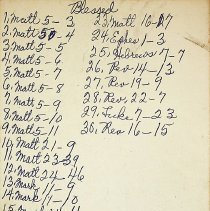 Blessed
1, Matt 5-3
2, Matt 5-4
3, Matt 5-5
4, Matt 5-6
5, Matt 5-7
6, Matt 5-8
7, Matt 5-9
8, Matt 5-10
9, Matt 5-11
10, Matt 21-9
11, Matt 23-39
12, Matt 24-46
13, Mark 11-9
14, Mark 11-10
23, Matt 16-17
24, Ephes 1-3
25, Hebrews 7-7
26, Rev 14-13
27, Rev 19-9
28, Rev 22-7
29, Luke 7-23
30, Rev 16-15